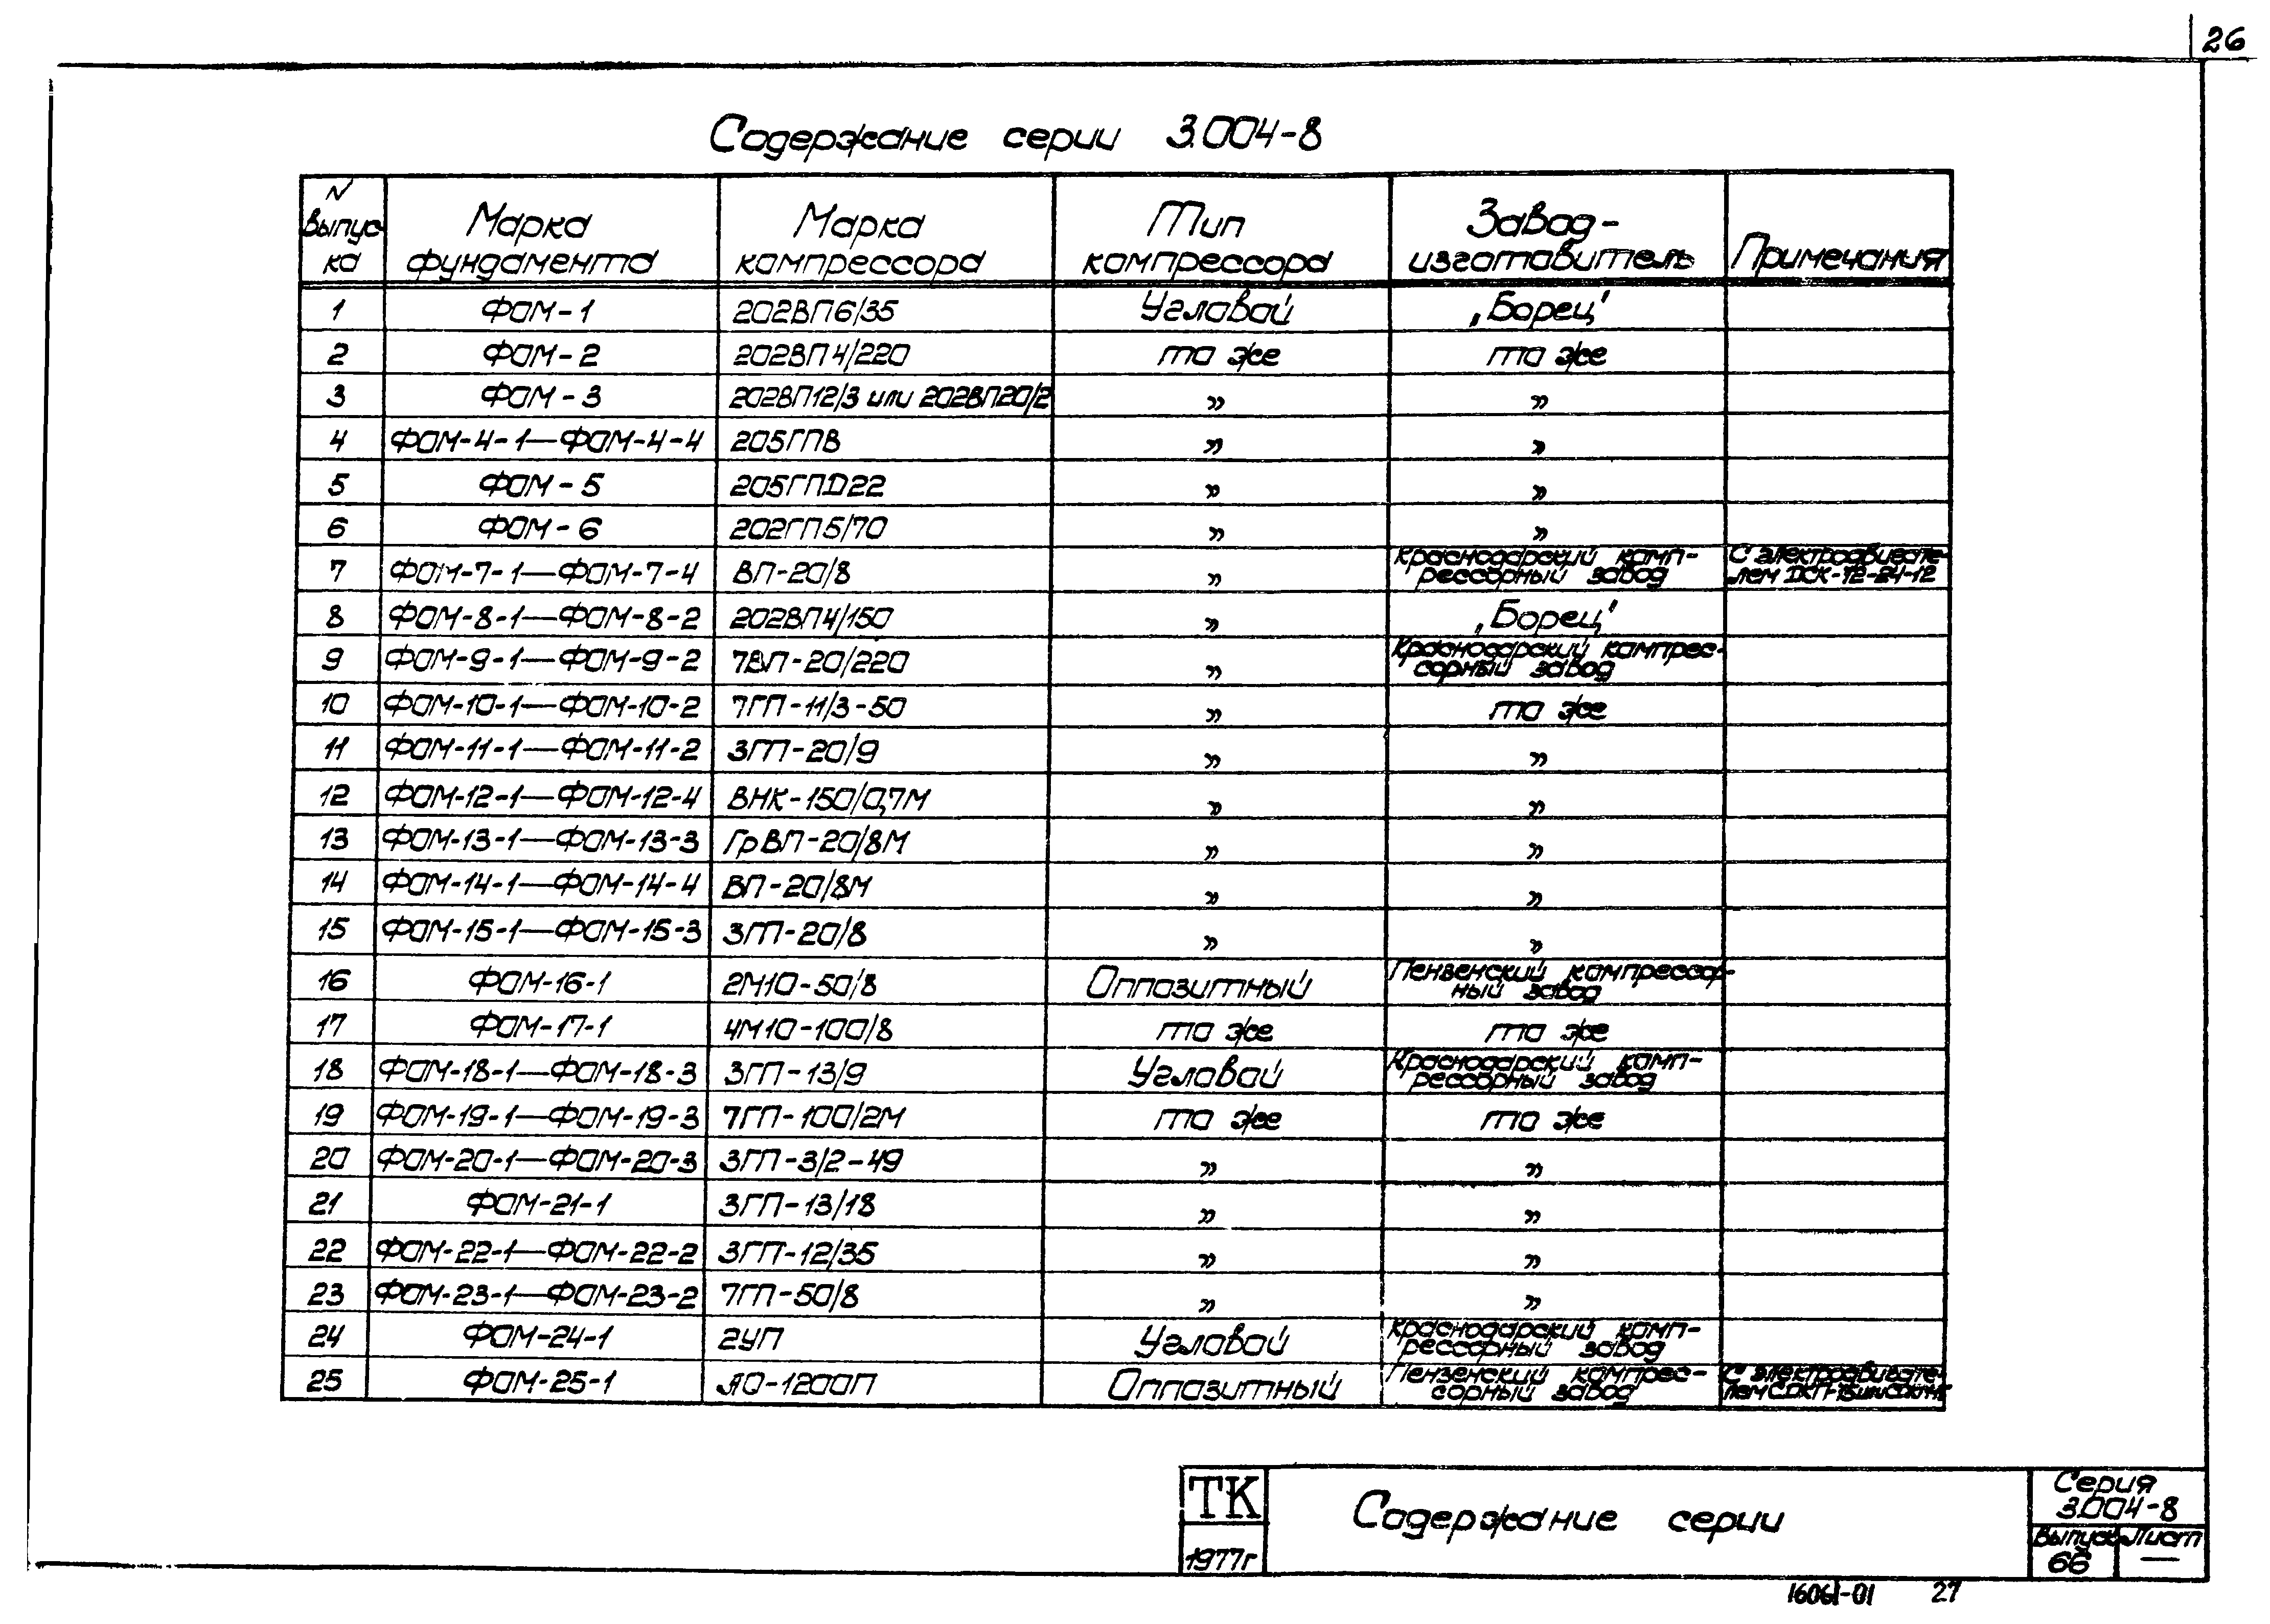 26
Содержание серии 3.004-8
N выпуска Марка фундамента Марка компрессора Тип компрессора Завод-изготовитель Примечания
1 ФОМ-1 202ВП6/35 Угловой „Борец"
2 ФОМ-2 202ВП4/220 то же то же
3 ФОМ-3 202ВП12/3 или 202ВП20/2 " "
4 ФОМ-4-1—ФОМ-4-4 205ГПВ " "
5 ФОМ-5 205ГПD22 " "
6 ФОМ-6 202ГП5/70 " "
7 ФОМ-7-1—ФОМ-7-4 ВП-20/8 " Краснодарский комп-рессорный завод С электродвигате-лем ДСК-12-24-12
8 ФОМ-8-1—ФОМ-8-2 202ВП4/150 " „Борец"
9 ФОМ-9-1—ФОМ-9-2 7ВП-20/220 " Краснодарский компрес-сорный завод
10 ФОМ-10-1—ФОМ-10-2 7ГП-11/3-50 " то же
11 ФОМ-11-1—ФОМ-11-2 3ГП-20/9 " "
12 ФОМ-12-1—ФОМ-12-4 ВНК-150/0,7М " "
13 ФОМ-13-1—ФОМ-13-3 ГрВП-20/8М " "
14 ФОМ-14-1—ФОМ-14-4 ВП-20/8М " "
15 ФОМ-15-1—ФОМ-15-3 3ГП-20/8 " "
16 ФОМ-16-1 2М10-50/8 Оппозитный Пензенский компрессор-ный завод
17 ФОМ-17-1 4М10-100/8 то же то же
18 ФОМ-18-1—ФОМ-18-3 3ГП-13/9 Угловой Краснодарский комп-рессорный завод
19 ФОМ-19-1—ФОМ-19-3 7ГП-100/2М то же то же
20 ФОМ-20-1—ФОМ-20-3 3ГП-3/2-49 " "
21 ФОМ-21-1 3ГП-13/18 " "
22 ФОМ-22-1—ФОМ-22-2 3ГП-12/35 " "
23 ФОМ-23-1—ФОМ-23-2 7ГП-50/8 " "
24 ФОМ-24-1 2УП Угловой Краснодарский комп-рессорный завод
25 ФОМ-25-1 АО-1200П Оппозитный Пензенский компрес-сорный завод С электродвигате-лем
ТК
1977г
Содержание серии
Серия
3.004-8
Выпуск Лист
66 —
16061-01 27